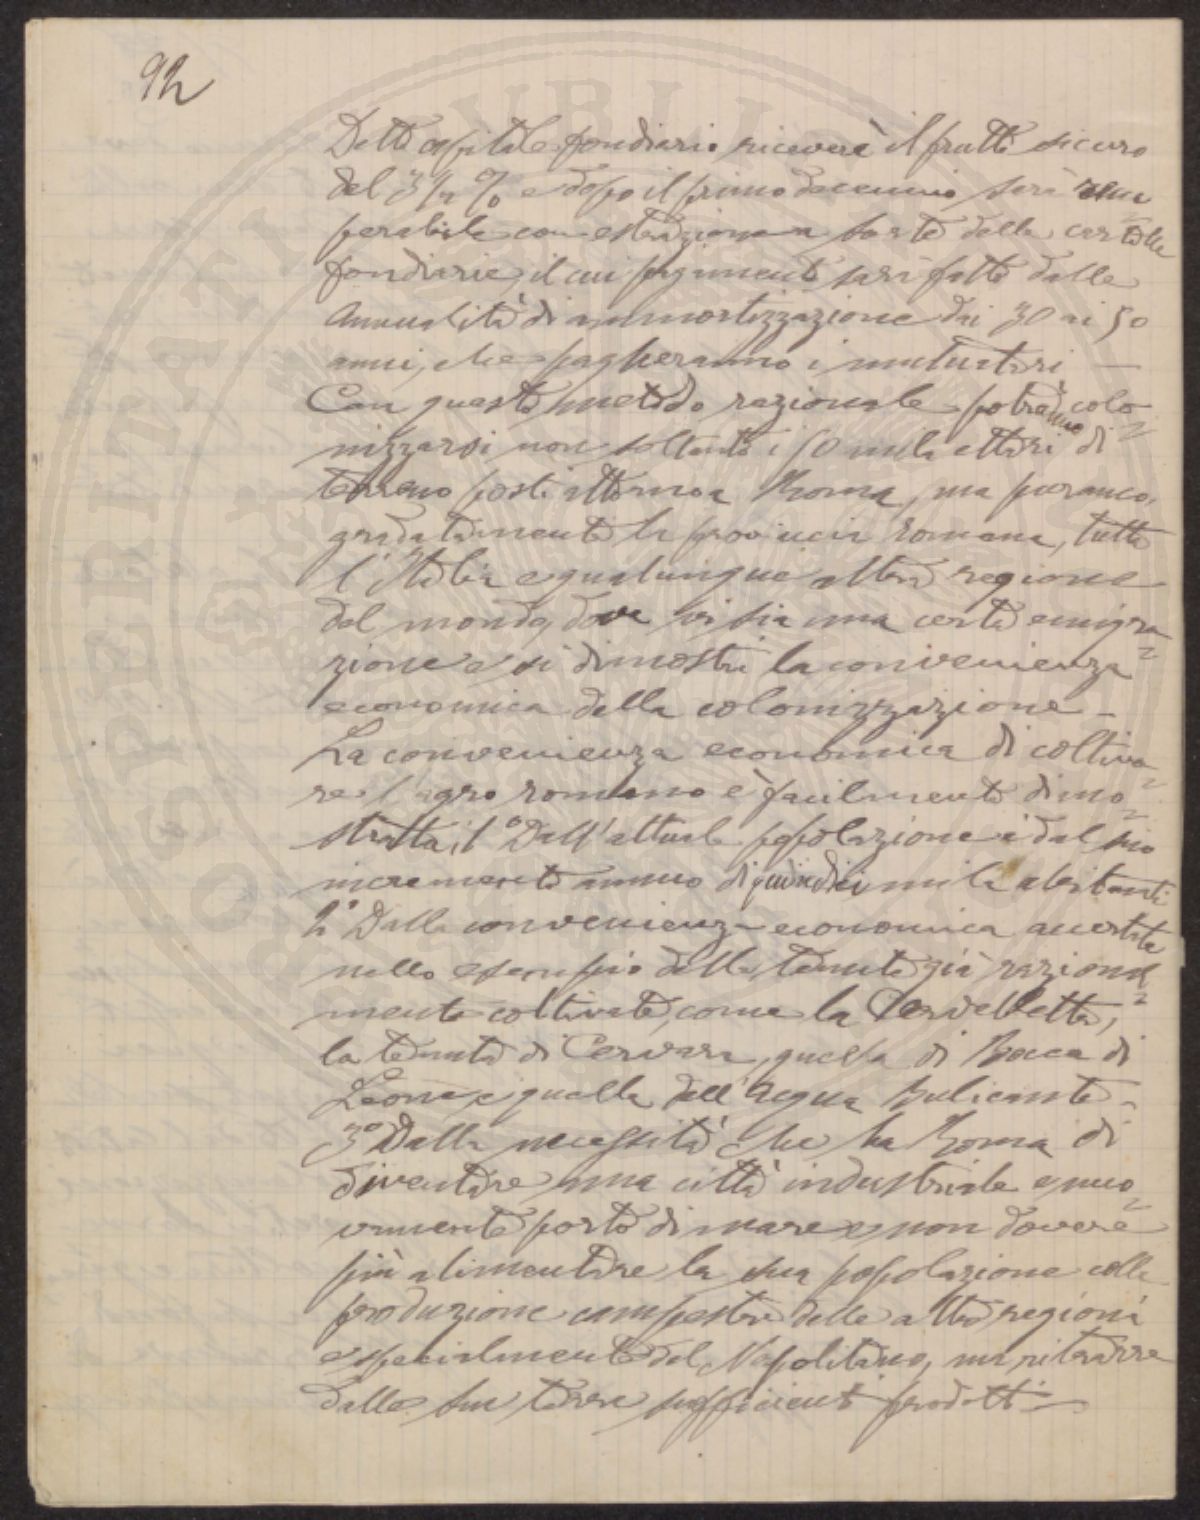 92
Detto capitale fondiario riceverà il frutto sicuro
del 3 1/2 % e dopo il primo decennio sarà recu
perabile con estrazione a sorte delle cartelle
fondiarie, il cui pagamento sarà fatto dalle
annualità di ammortizzazione dai 30 ai 50
anni, che pagheranno i mutuatari —
Con questo metodo razionale potranno colo
nizzarsi non soltanto i 50 mila ettari di
terreno posti attorno a Roma, ma puranco,
gradatamente la provincia romana, tutta
l'Italia e qualunque altra regione
del mondo, dove vi sia una certa emigra
zione e si dimostri la convenienza
economica della colonizzazione —
La convenienza economica di coltiva
re l'agro romano è facilmente dimo
stratta, 1° Dall'attuale popolazione e dal suo
incremento annuo di quindici mila abitanti
2° Dalla convenienza economica accertata
nello esempio delle tenute già razional
mente coltivate, come la Cervelletta,
la tenuta di Cervara, quella di Bocca di
Leone e quella dell'Acqua Bulicante —
3° Dalla necessità che ha Roma di
diventare una città industriale e nuo
vamente porto di mare e non dovere
più alimentare la sua popolazione colla
produzione campestre delle altre regioni
e specialmente del Napolitano, ma ritrarre
dalle sue terre sufficienti prodotti —
PROSPERITATI PUBLICAE